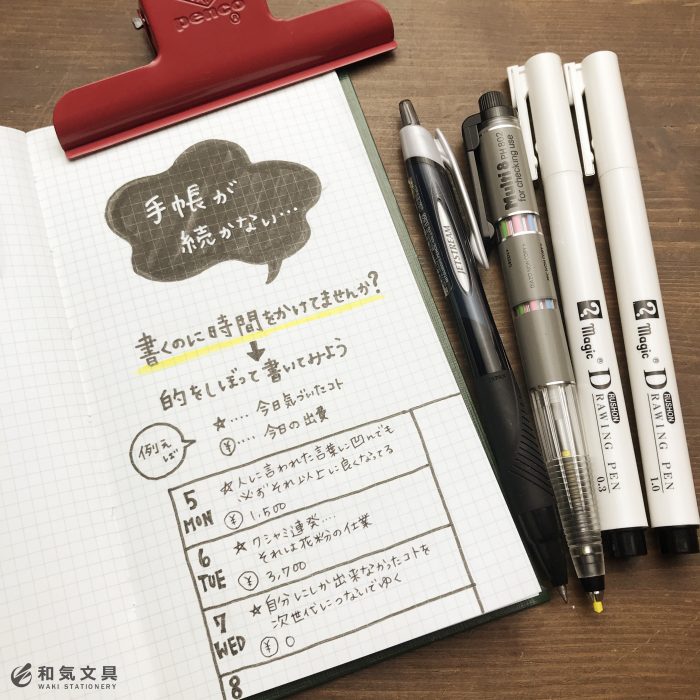 penco®
手帳が
続かない…
書くのに時間をかけてませんか?
的をしぼって書いてみよう
例えば
☆‥‥今日気づいたコト
¥‥‥今日の出費
5
MON
☆人に言われた言葉に凹んでも
必ずそれ以上に良くなってる
¥ 1,500
6
TUE
☆クシャミ連発‥‥
それは花粉の仕業
¥ 3,700
7
WED
☆自分にしか出来なかったコトを
次世代につないでゆく
¥ 0
8
JETSTREAM
Multi8 PH 802
for checking use
Magic®
DRAWING PEN
RUSHON
0.3
Magic®
DRAWING PEN
RUSHON
1.0
和気文具
WAKI STATIONERY